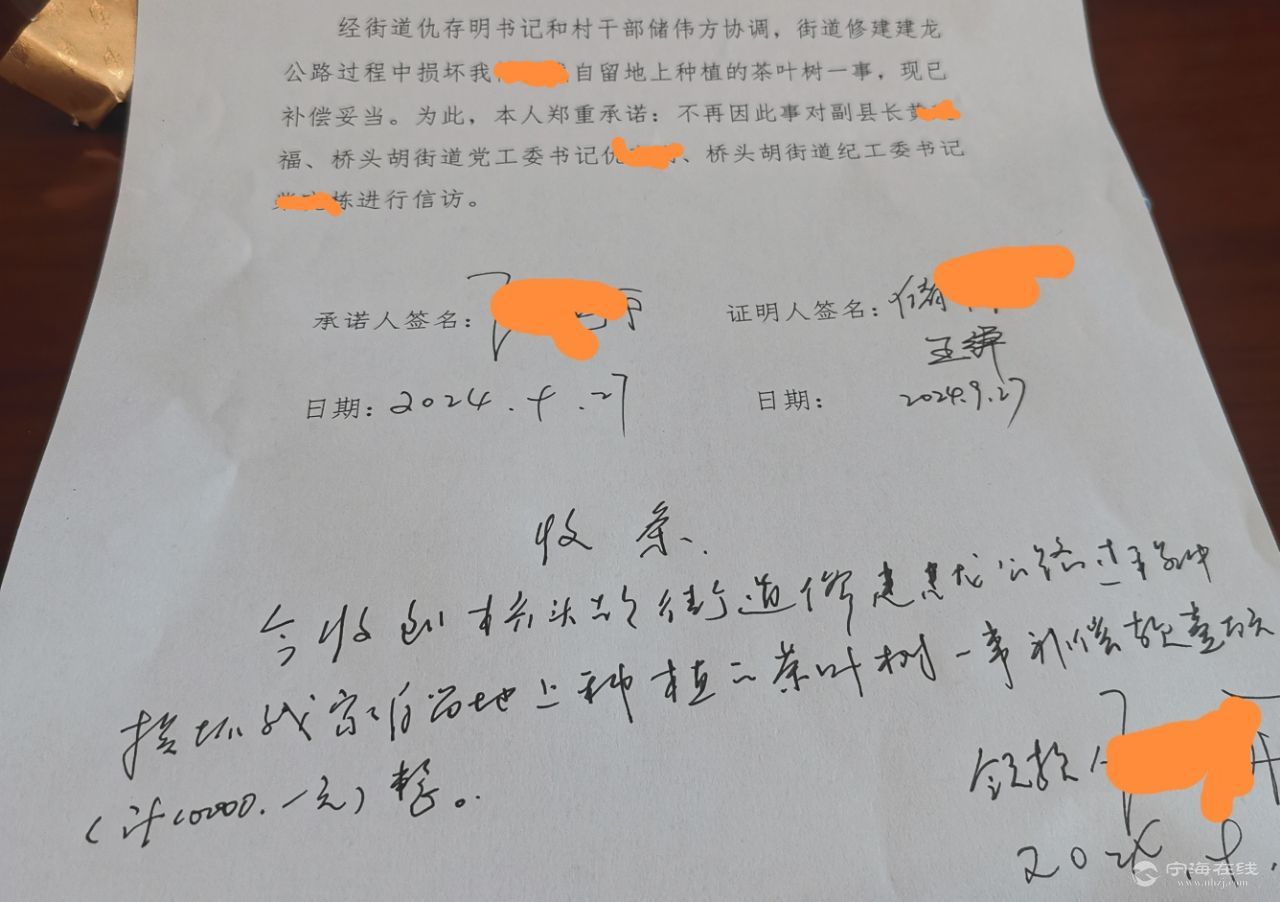 经街道仇存明书记和村干部储伟方协调，街道修建建龙
公路过程中损坏我自留地上种植的茶叶树一事，现已
补偿妥当。为此，本人郑重承诺：不再因此事对副县长黄
福、桥头胡街道党工委书记仇、桥头胡街道纪工委书记
栋进行信访。
承诺人签名：
证明人签名：储
王
日期：2024.9.27
日期：2024.9.27
收条
今收到桥头胡街道修建建龙公路过程中
损坏我家自留地上种植的茶叶树一事补偿款壹万元
（计10000.一元）整。
领款人
宁海在线
www.nhzj.com